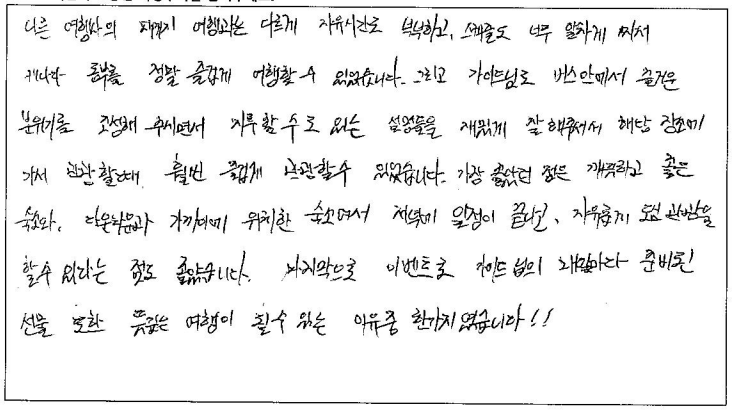 다른 여행사의 패키지 여행과는 다르게 자유시간도 넉넉하고, 스케줄도 너무 알차게 짜서
캐나다 동부를 정말 즐겁게 여행할 수 있었습니다. 그리고 가이드님도 버스안에서 즐거운
분위기를 조성해 주시면서 지루할 수도 있는 설명들을 재밌게 잘 해주셔서 해당 장소에
가서 관광할때 훨씬 즐겁게 관광할수 있었습니다. 가장 좋았던 점은 깨끗하고 좋은
숙소와, 다운타운과 가까이에 위치한 숙소여서 저녁에 일정이 끝나고, 자유롭게 도심 관광을
할수 있다는 점도 좋았습니다. 마지막으로 이벤트로 가이드님의 준비된
선물 또한 뜻깊은 여행이 될수 있는 이유중 한가지였습니다!!